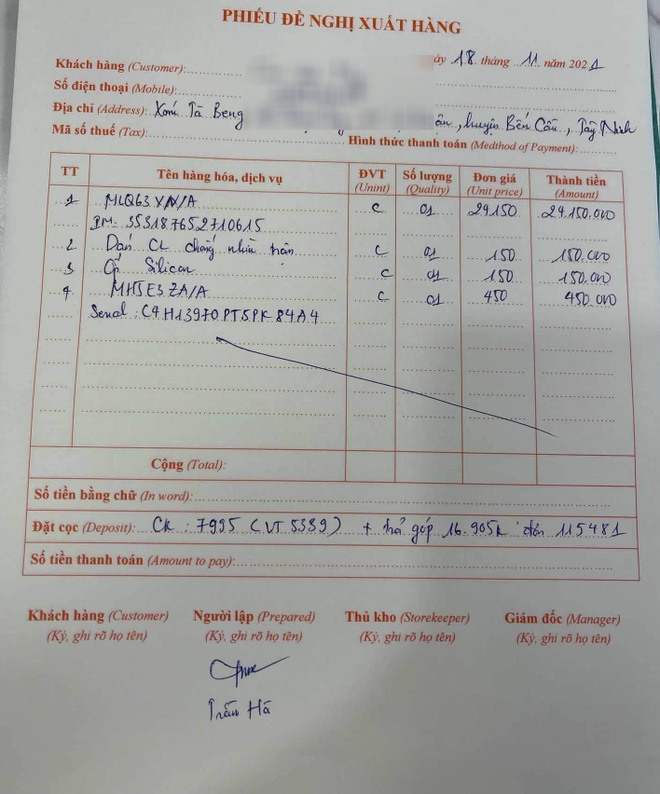 PHIẾU ĐỀ NGHỊ XUẤT HÀNG
ày 18 tháng 11 năm 2021
Khách hàng (Customer):
Số điện thoại (Mobile):
Địa chỉ (Address): Xóm Tà Beng ân, huyện Bến Cầu, Tây Ninh
Mã số thuế (Tax): Hình thức thanh toán (Medthod of Payment):
TT Tên hàng hóa, dịch vụ ĐVT (Unint) Số lượng (Quality) Đơn giá (Unit price) Thành tiền (Amount)
1 MLQ63 VN/A C 01 29.150 29.150.000
IM: 353187652710615
2 Dán CL chống nhìn trộm C 01 150 150.000
3 Ốp Silicon C 01 150 150.000
4 MHJE3 ZA/A C 01 450 450.000
Serial: C4H13970PT5PK84A4
Cộng (Total):
Số tiền bằng chữ (In word):
Đặt cọc (Deposit): CK: 7995 (VT 5339) + trả góp 16.905k đơn 115481
Số tiền thanh toán (Amount to pay):
Khách hàng (Customer) Người lập (Prepared) Thủ kho (Storekeeper) Giám đốc (Manager)
(Ký, ghi rõ họ tên) (Ký, ghi rõ họ tên) (Ký, ghi rõ họ tên) (Ký, ghi rõ họ tên)
Trần Hà